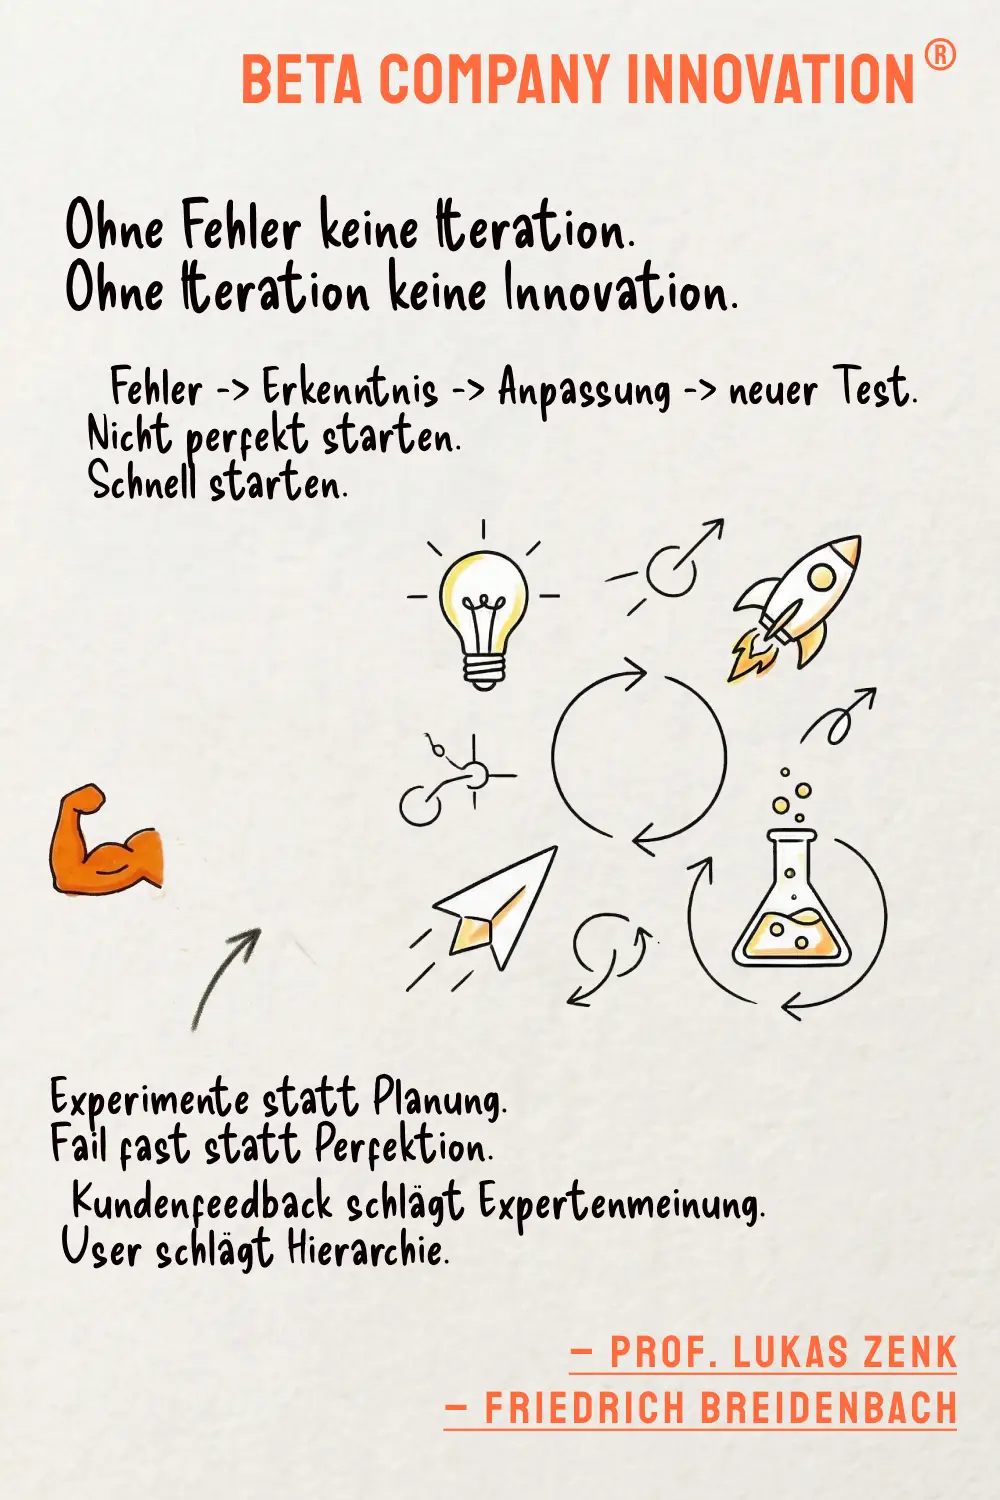 BETA COMPANY INNOVATION®
Ohne Fehler keine Iteration.
Ohne Iteration keine Innovation.
Fehler -> Erkenntnis -> Anpassung -> neuer Test.
Nicht perfekt starten.
Schnell starten.
Experimente statt Planung.
Fail fast statt Perfektion.
Kundenfeedback schlägt Expertenmeinung.
User schlägt Hierarchie.
– PROF. LUKAS ZENK
– FRIEDRICH BREIDENBACH